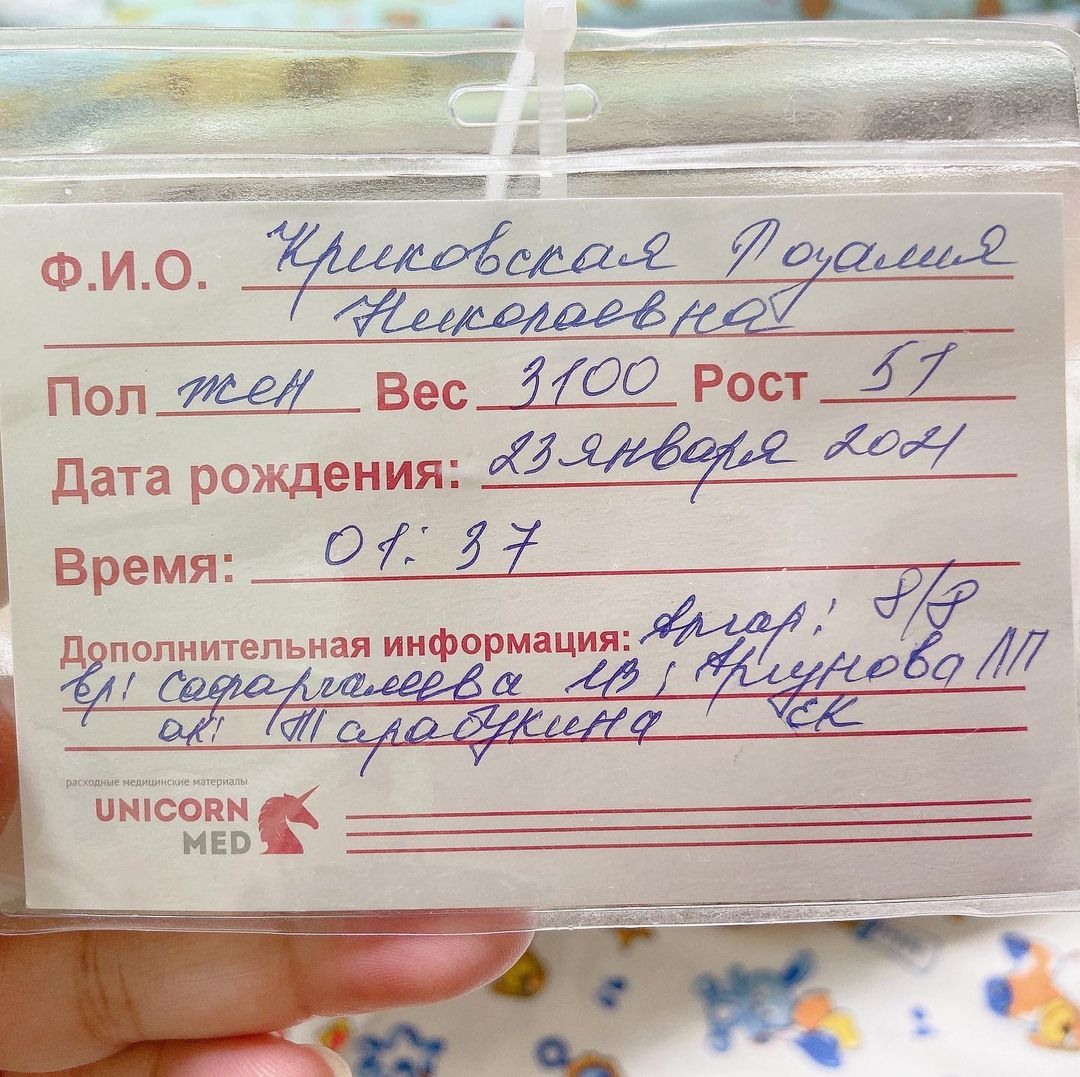 Ф.И.О. Криковская Розалия
Николаевна
Пол жен Вес 3100 Рост 51
Дата рождения: 23 января 2021
Время: 01:37
Дополнительная информация: Апгар: 8/8
вр: Сафаргалеева ИВ; Аргунова ЛП
ак: Тарабукина ЕК
расходные медицинские материалы
UNICORN
MED